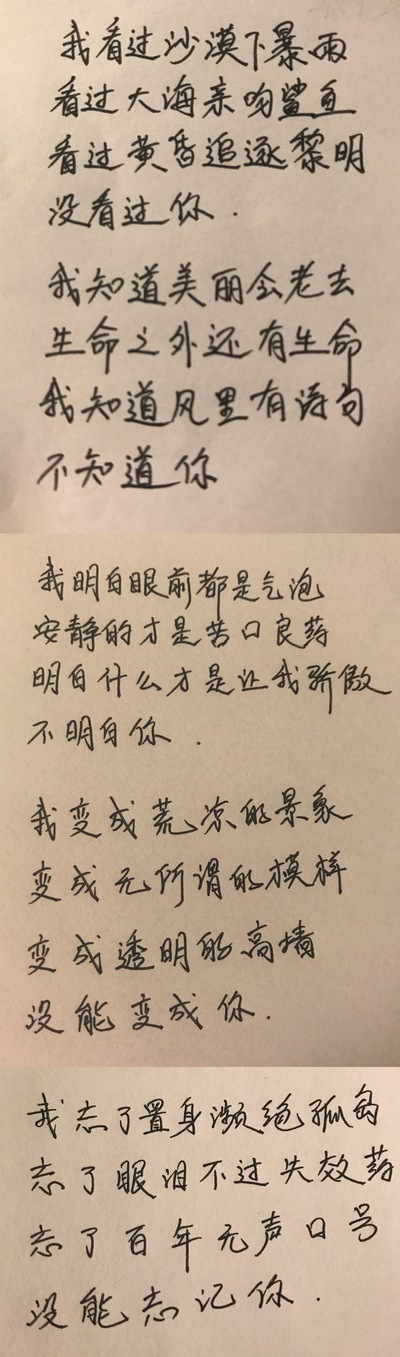 我看过沙漠下暴雨
看过大海亲吻鲨鱼
看过黄昏追逐黎明
没看过你.
我知道美丽会老去
生命之外还有生命
我知道风里有诗句
不知道你
我明白眼前都是气泡
安静的才是苦口良药
明白什么才是让我骄傲
不明白你.
我变成荒凉的景象
变成无所谓的模样
变成透明的高墙
没能变成你.
我忘了置身濒绝孤岛
忘了眼泪不过失效药
忘了百年无声口号
没能忘记你.